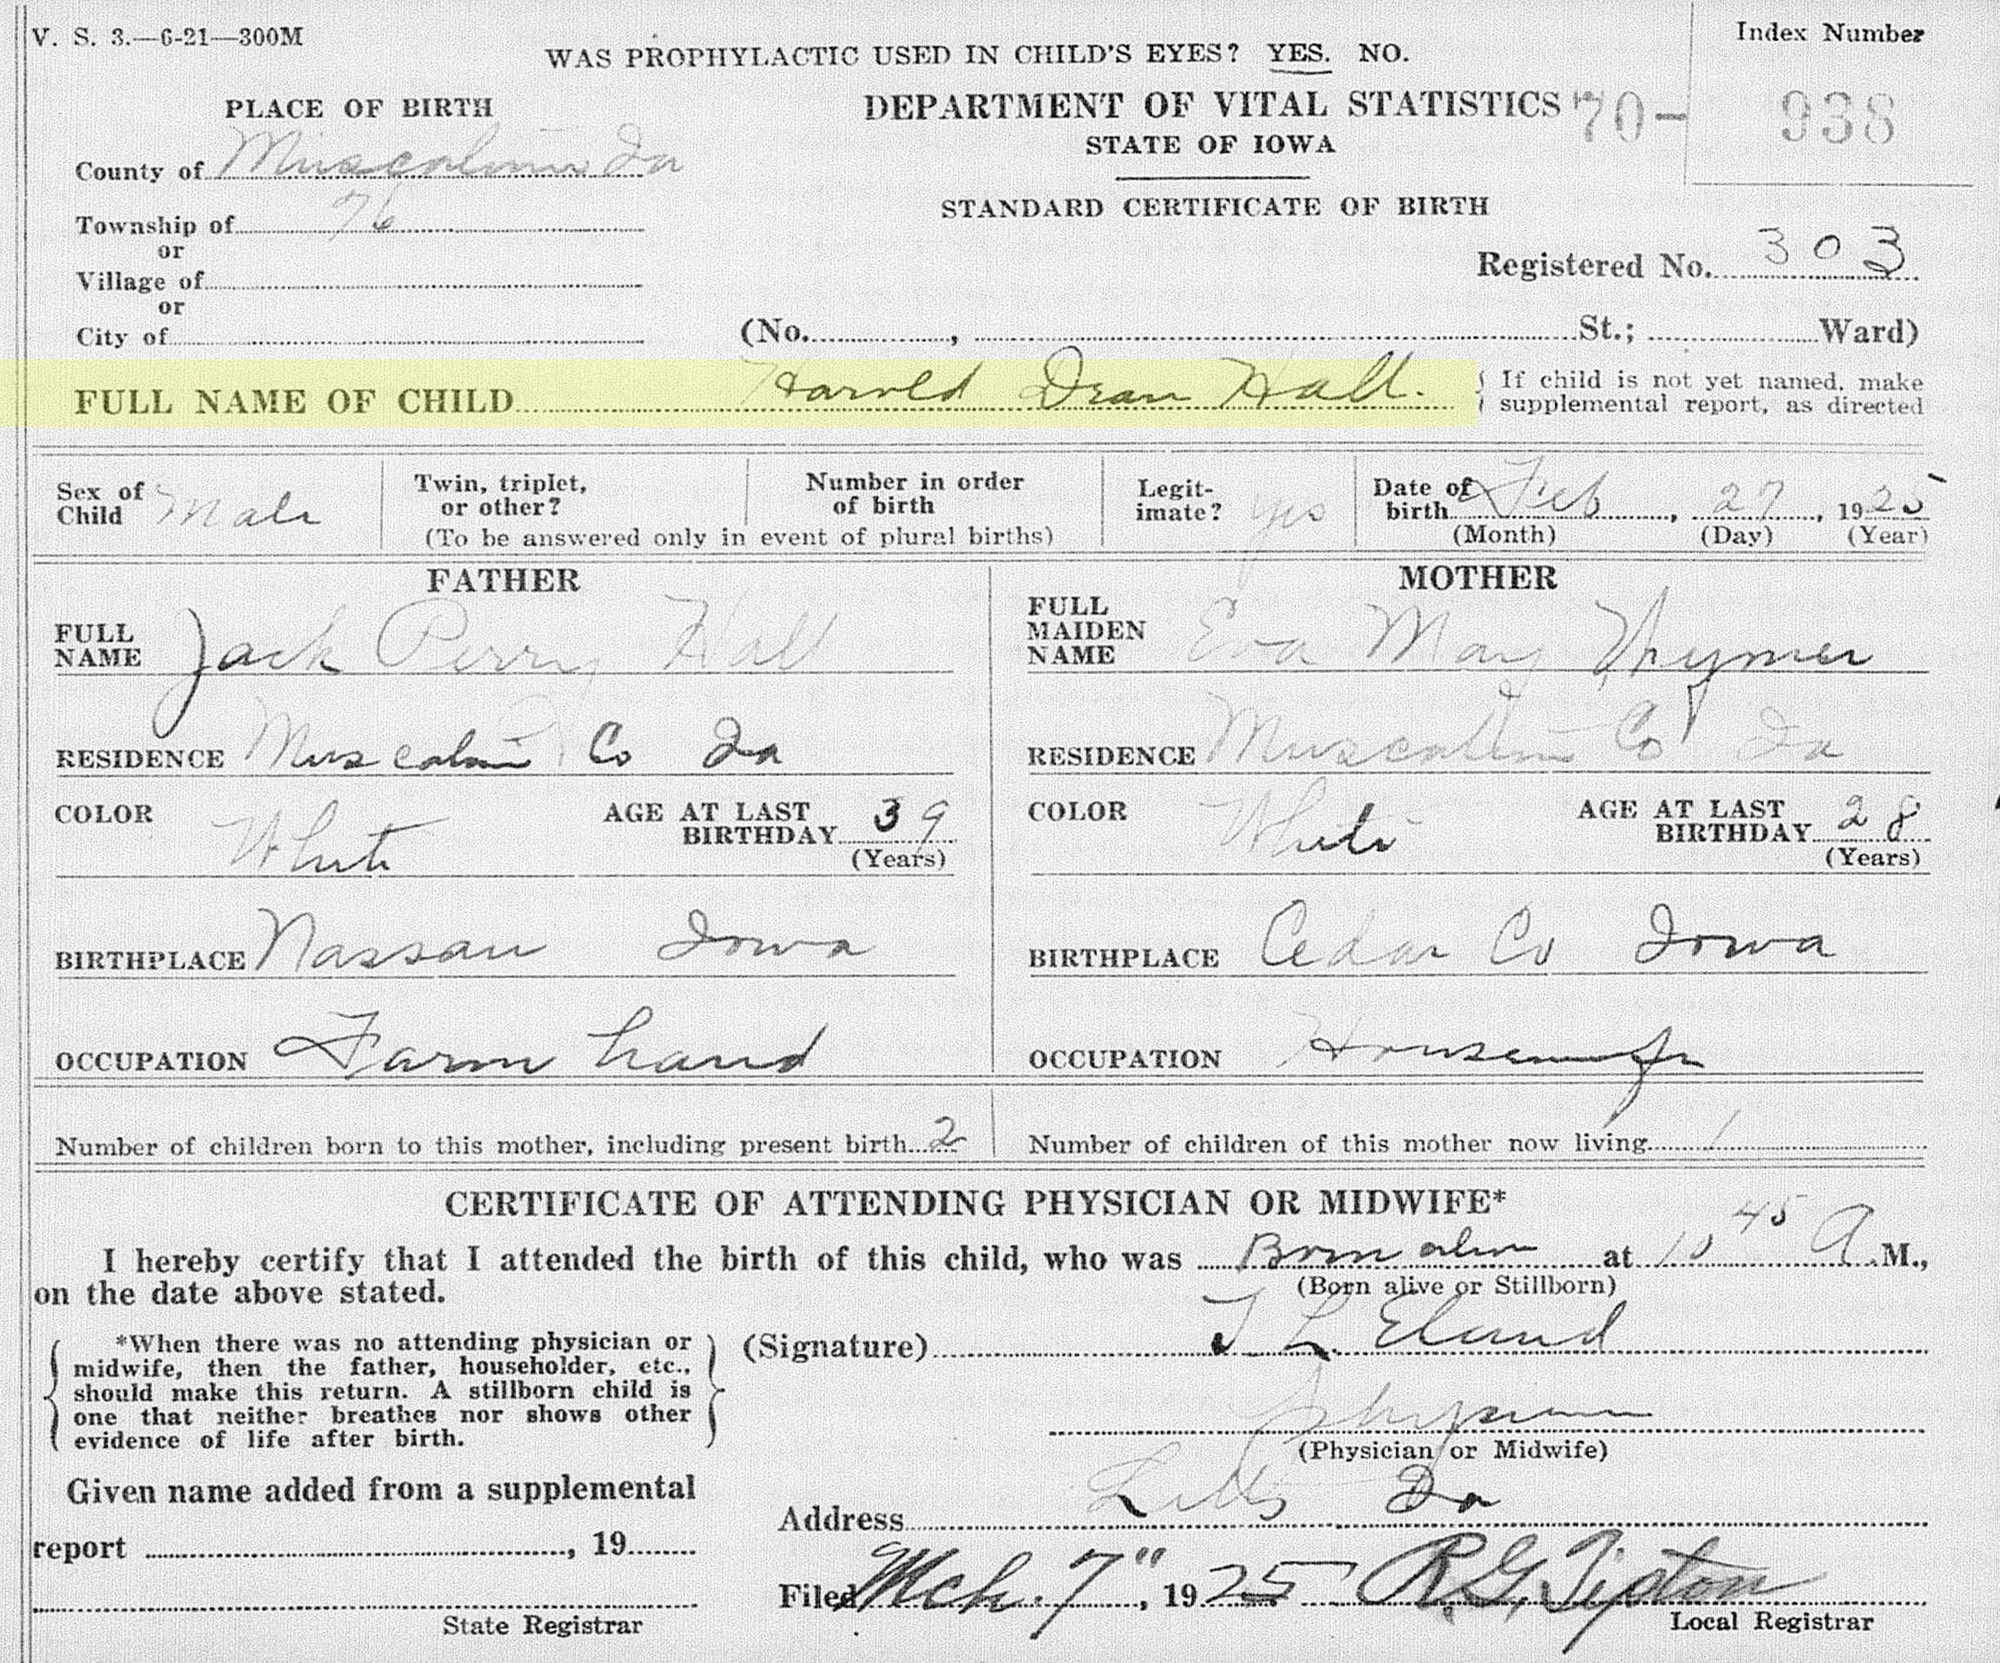 V. S. 3.—6-21—300M
WAS PROPHYLACTIC USED IN CHILD'S EYES? YES. NO.
Index Number
PLACE OF BIRTH
DEPARTMENT OF VITAL STATISTICS 70- 938
STATE OF IOWA
County of Muscatine Ia
STANDARD CERTIFICATE OF BIRTH
Township of 76
or
Registered No. 303
Village of
or
City of
(No. , St.; Ward)
FULL NAME OF CHILD Harold Dean Hall.
If child is not yet named, make
supplemental report, as directed
Sex of
Child Male
Twin, triplet,
or other?
Number in order
of birth
(To be answered only in event of plural births)
Legit-
imate? yes
Date of
birth Feb , 27 , 1925
(Month) (Day) (Year)
FATHER
FULL
NAME Jack Perry Hall
RESIDENCE Muscatine Co Ia
COLOR White
AGE AT LAST
BIRTHDAY 39
(Years)
BIRTHPLACE Nassau Iowa
OCCUPATION Farm hand
MOTHER
FULL
MAIDEN
NAME Eva May
RESIDENCE Muscatine Co Ia
COLOR White
AGE AT LAST
BIRTHDAY 28
(Years)
BIRTHPLACE Cedar Co Iowa
OCCUPATION Housewife
Number of children born to this mother, including present birth 2
Number of children of this mother now living 1
CERTIFICATE OF ATTENDING PHYSICIAN OR MIDWIFE*
I hereby certify that I attended the birth of this child, who was Born alive at 10 45 A.M.,
(Born alive or Stillborn)
on the date above stated.
*When there was no attending physician or
midwife, then the father, householder, etc.,
should make this return. A stillborn child is
one that neither breathes nor shows other
evidence of life after birth.
(Signature) T L. Eland
Physician
(Physician or Midwife)
Given name added from a supplemental
report , 19
State Registrar
Address Letts Ia
Filed Mch. 7" , 1925 R.G. Tipton
Local Registrar